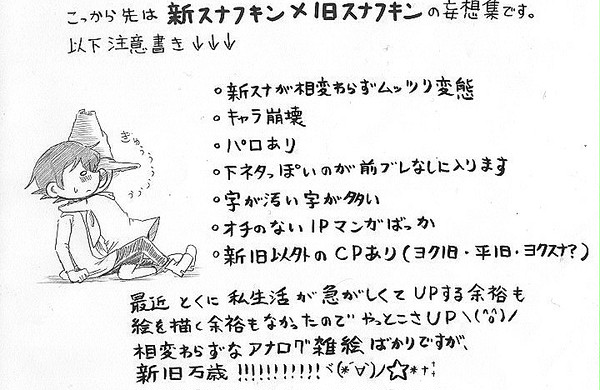 こっから先は 新スナフキン×旧スナフキン の妄想集です。
以下注意書き↓↓↓
○新スナが相変わらずムッツリ変態
○キャラ崩壊
○パロあり
○下ネタっぽいのが前ブレなしに入ります
○字が汚い字が多い
○オチのない1Pマンガばっか
○新旧以外のCPあり(ヨク旧・平旧・ヨクスナ?)
ぎゅうぅぅぅぅ
最近 とくに 私生活が 急がしくて UPする余裕も
絵を描く余裕もなかったので やっとこさUP\(^o^)/
相変わらずなアナログ雑絵 ばかりですが、
新旧万歳 !!!!!!!!!!!ヾ(*´∀`)ノ☆*+